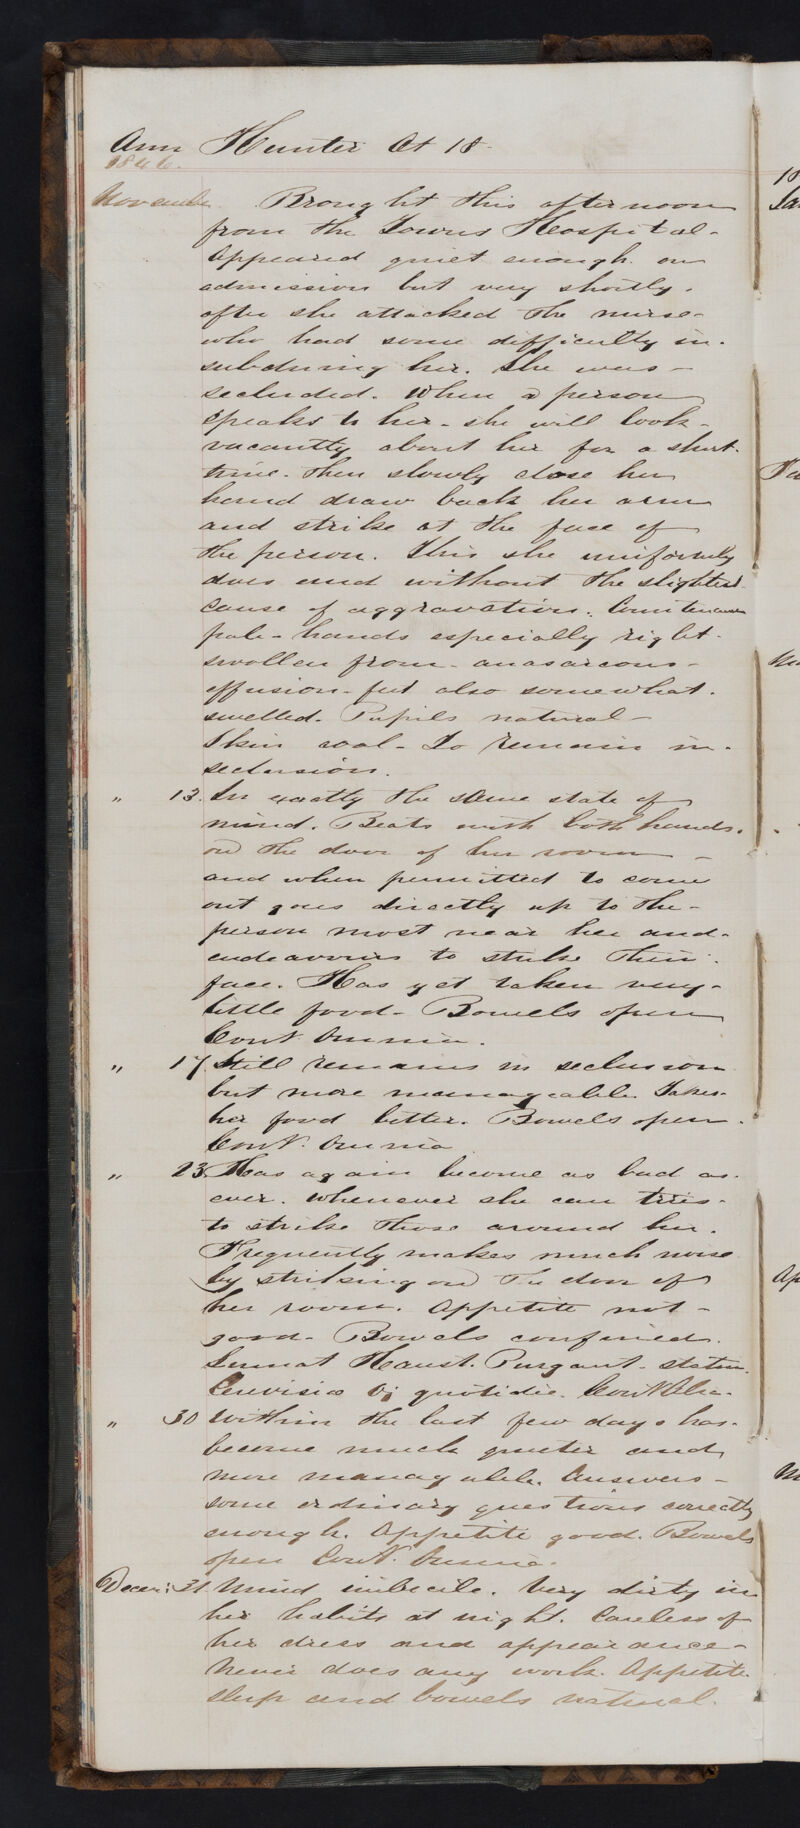 Ann Hunter Æt 18
1846.
November Brought this afternoon
from the Towns Hospital-
Appeared quiet enough on
admission but very shortly.
after she attacked the nurse-
who had some difficulty in.
subduing her. She was-
secluded. When a person
speaks to her- she will look-
vacantly about her for a short.
time. then slowly close her
hand draw back her arm
and strike at the face of
the person. This she uniformly
does and without the slightest
cause of aggravation. Countenance
pale- hands especially right.
swollen from- anasarcous-
effusion- feet also somewhat.
swelled- Pupils natural-
Skin cool- To remain in.
seclusion.
" 13. In exactly the same state of
mind. Beats with both hands.
on the door of her room -
and when permitted to come
out goes directly up to the-
person most near her and-
endeavours to strike their.
face. Has yet taken very-
little food- Bowels open
Cont. Omnia.
" 17. Still remains in seclusion
but more manageable. Takes-
her food better. Bowels open.
Cont. Omnia
" 23. Has again become as bad as.
ever. Whenever she can tries-
to strike those around her.
Frequently makes much noise
by striking on the door of
her room. Appetite not-
good- Bowels confined.
Sumat Haust. Purgant- statim.
Cerevisiæ quotidie. Cont. Alia-
" 30 Within the last few days has-
become much quieter and
more managable. Answers-
some ordinary questions correctly
enough. Appetite good. Bowels
open Cont. Omnia.
Decer: 31 Mind imbecile. Very dirty in
her habits at night. Careless of
her dress and appearance-
Never does any work. Appetite
sleep and bowels natural.
18
Ap